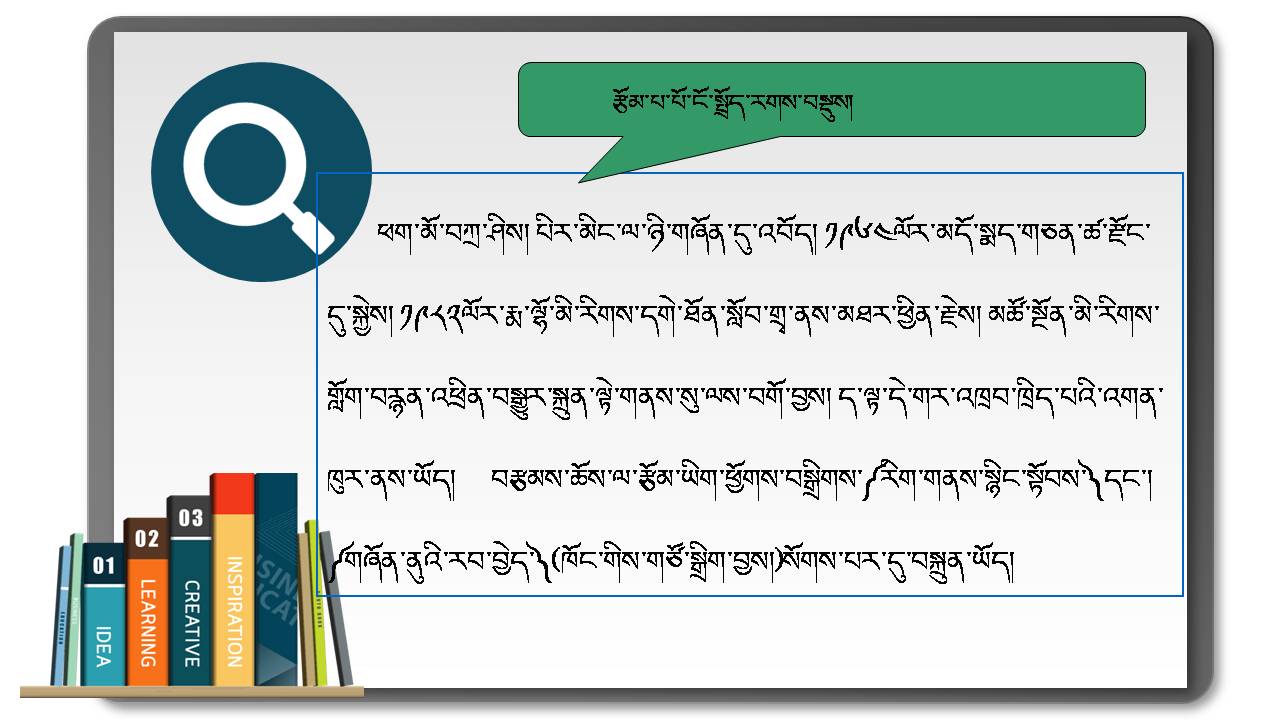 རྩོམ་པ་པོ་ངོ་སྤྲོད་རགས་བསྡུས།
ཕག་མོ་བཀྲ་ཤིས། པིར་མིང་ལ་ཉི་གཞོན་དུ་འབོད། ༡༩༦༤ལོར་མདོ་སྨད་གཅན་ཚ་རྫོང་
དུ་སྐྱེས། ༡༩༨༢ལོར་རྨ་ལྷོ་མི་རིགས་དགེ་ཐོན་སློབ་གྲྭ་ནས་མཐར་ཕྱིན་རྗེས། མཚོ་སྔོན་མི་རིགས་
གློག་བརྙན་འཕྲིན་བསྒྱུར་སྐྲུན་ལྟེ་གནས་སུ་ལས་བགོ་བྱས། ད་ལྟ་དེ་གར་འཁྲབ་ཁྲིད་པའི་འགན་
ཁུར་ནས་ཡོད། བརྩམས་ཆོས་ལ་རྩོམ་ཡིག་ཕྱོགས་བསྒྲིགས་༼རིག་གནས་སྙིང་སྟོབས་༽དང་།
༼གཞོན་ནུའི་རབ་བྱེད་༽(ཁོང་གིས་གཙོ་སྒྲིག་བྱས།)སོགས་པར་དུ་བསྐྲུན་ཡོད།
01
02
03
IDEA
LEARNING
CREATIVE
INSPIRATION